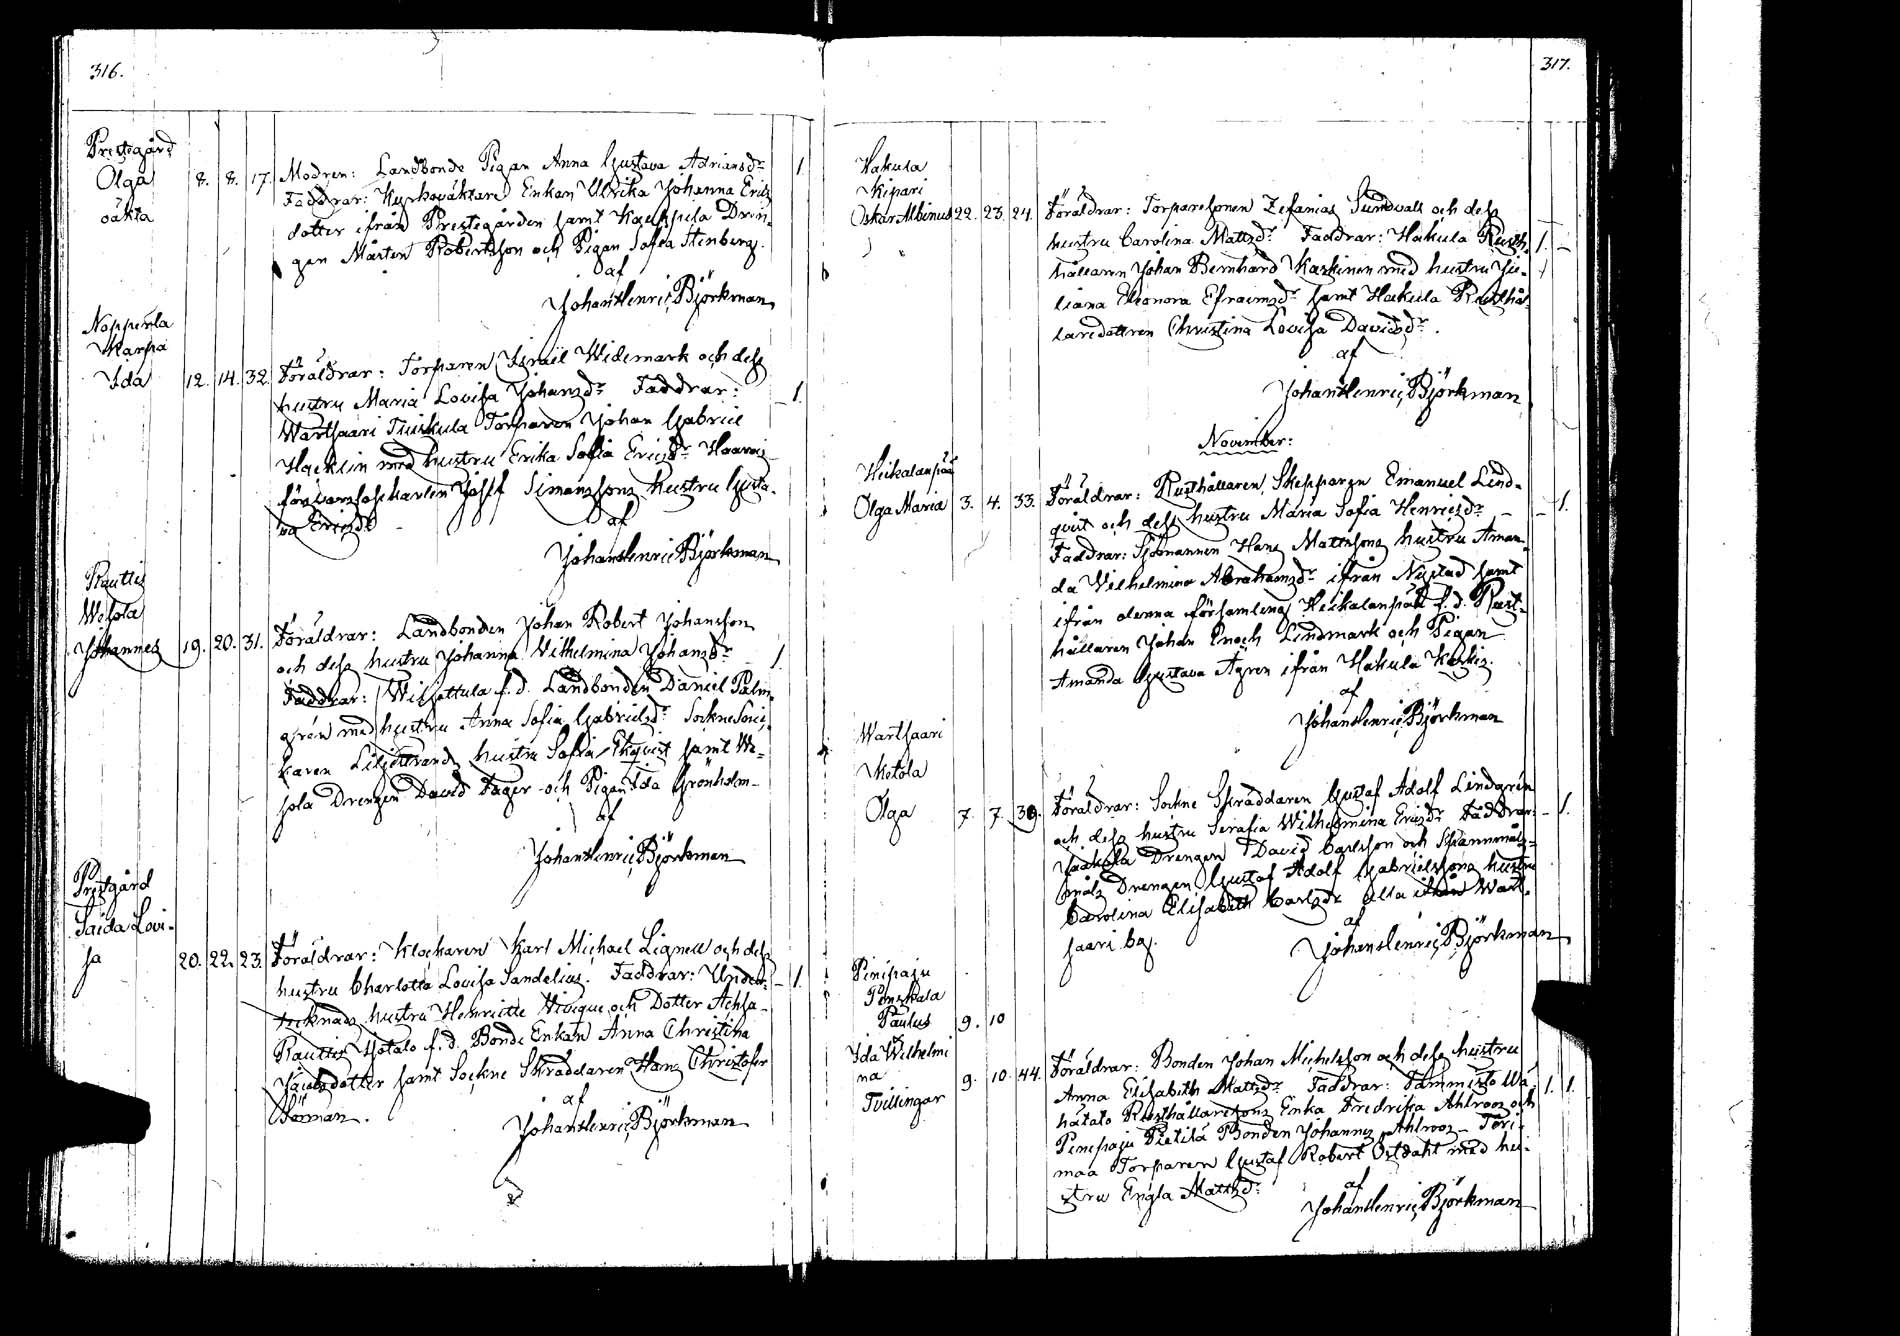 316.
Prestegård
Olga 8. 8. 17. Modren: Landbonde Pigan Anna Gustava Adriansdr 1
oäkta Faddrar: Enkan Ulrika Johanna Erics
dotter ifrån Prestegården samt Kauppila Dren-
gen Mårten Robertsson och Pigan Sofia Stenberg.
af
Johan Henric Björkman
Nopperla
Karpa
Ida 12. 14. 32. Föräldrar: Torparen Israel Widemark och dess
hustru Maria Lovisa Johansdr Faddrar: – 1.
Wartsaari Tiuskula Torparen Johan Gabriel
Hacklin med hustru Erika Sofia Ericsdr
Josef Simonssons hustru Gusta-
va Ericsdr –
af
Johan Henric Björkman
Rauttis
Wesola
Johannes 19. 20. 31. Föräldrar: Landbonden Johan Robert Johansson
och dess hustru Johanna Vilhelmina Johansdr – 1.
Faddrar: f. d. Landbonden Daniel Palm-
grén med hustru Anna Sofia Gabrielsdr Sockne
karen Liljestrands hustru Sofia Ekqvist samt We-
sola Drengen David Fager och Pigan Ida Grönholm –
af
Johan Henric Björkman
Prestgård
Saida Lovi-
sa 20. 22. 23. Föräldrar: Klockaren Karl Michael Lignell och dess
hustru Charlotta Lovisa Sandelius. Faddrar: Under- – 1.
tecknads hustru Henriette och Dotter Achsa –
Rauttis Yötalo f. d. Bonde Enkan Anna Christina
Jacobsdotter samt Sockne Skräddaren Hans Christofer
Söman.
af
Johan Henric Björkman
317.
Hakula
Kipari
Oskar Albinus 22. 23. 24. Föräldrar: Torparesonen Zefanias Sundvall och dess
hustru Carolina Mattsdr Faddrar: Hakula Rust- 1. –
hållaren Johan Bernhard Karkinen med hustru Ju-
liana Eleonora Efraimsdr samt Hakula Rusthål-
laredottren Christina Lovisa Davidsdr.
af
Johan Henric Björkman
November:
Heikalanpää
Olga Maria 3. 4. 33. Föräldrar: Rusthållaren, Skepparen Emanuel Lind-
qvist och dess hustru Maria Sofia Henricsdr – – 1.
Faddrar: Sjömannen Hans Mattssons hustru Aman-
da Vilhelmina Abrahamsdr ifrån Nystad samt
ifrån denna församling Heikalanpää f. d. Rust-
hållaren Johan Enoch Lindmark och Pigan
Amanda Gustava Ågren ifrån Hakula
af
Johan Henric Björkman
Wartsaari
Ketola
Olga 7. 7. 39. Föräldrar: Sockne Skräddaren Gustaf Adolf Lindgrén
och dess hustru Serafia Wilhelmina Ericsdr Faddrar: – 1.
Jaakola Drengen David Carlsson och
Drengen Gustaf Adolf Gabrielssons hustru
Carolina Elisabeth Carlsdr alla ifrån Wart-
saari by.
af
Johan Henric Björkman
Pinipaju
Penskala
Paulus 9. 10
Ida Wilhelmi
na 9. 10. 44. Föräldrar: Bonden Johan Michelsson och dess hustru
Tvillingar Anna Elisabeth Mattsdr Faddrar: Tammisto Wä- 1. 1.
hätalo Rusthållaresons Enka Fredrika Ahlroos och
Pinipaju Pietilä Bonden Johannes Ahlroos – Tori-
maa Torparen Gustaf Robert Östdahl med hu-
stru Engla Mattsdr
af
Johan Henric Björkman